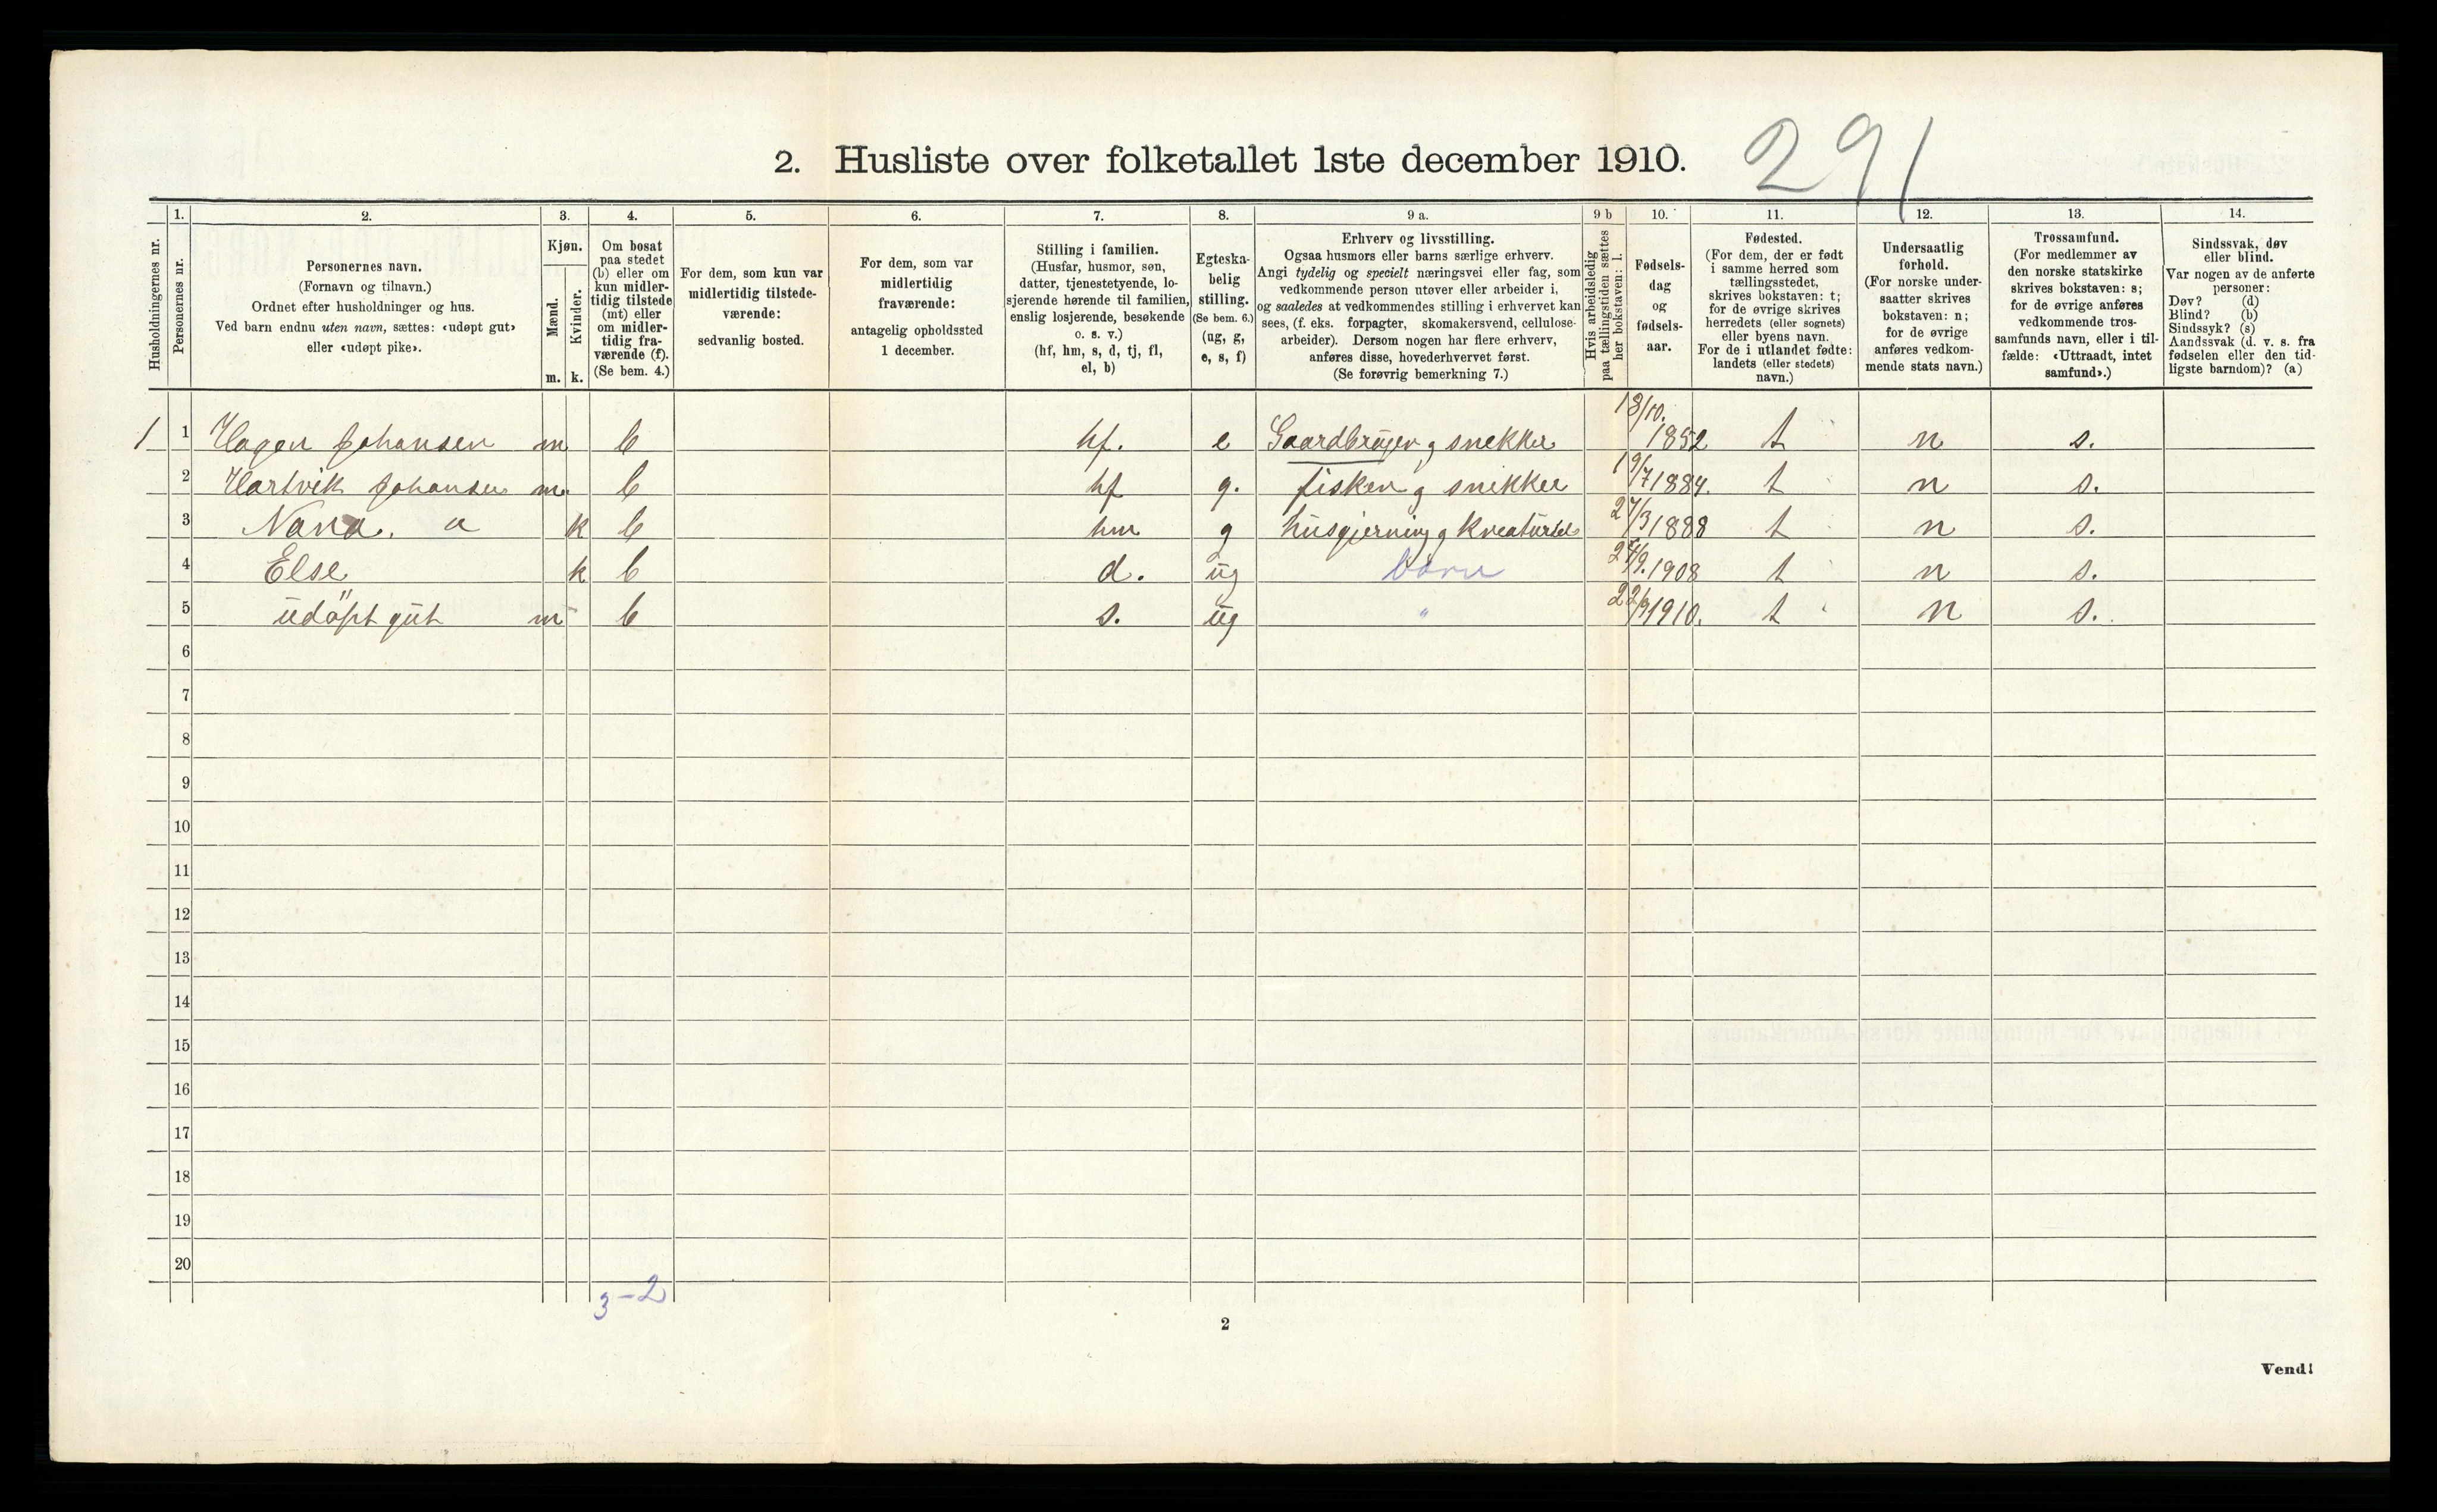 2. Husliste over folketallet 1ste december 1910.
291
Husholdningernes nr.
1.
Personernes nr.
2.
Personernes navn.
(Fornavn og tilnavn.)
Ordnet efter husholdninger og hus.
Ved barn endnu uten navn, sættes: «udøpt gut»
eller «udøpt pike».
3.
Kjøn.
Mænd.
Kvinder.
m. k.
4.
Om bosat
paa stedet
(b) eller om
kun midler-
tidig tilstede
(mt) eller
om midler-
tidig fra-
værende (f).
(Se bem. 4.)
5.
For dem, som kun var
midlertidig tilstede-
værende:
sedvanlig bosted.
6.
For dem, som var
midlertidig
fraværende:
antagelig opholdssted
1 december.
7.
Stilling i familien.
(Husfar, husmor, søn,
datter, tjenestetyende, lo-
sjerende hørende til familien,
enslig losjerende, besøkende
o. s. v.)
(hf, hm, s, d, tj, fl,
el, b)
8.
Egteska-
belig
stilling.
(Se bem. 6.)
(ug, g,
e, s, f)
9 a.
Erhverv og livsstilling.
Ogsaa husmors eller barns særlige erhverv.
Angi tydelig og specielt næringsvei eller fag, som
vedkommende person utøver eller arbeider i,
og saaledes at vedkommendes stilling i erhvervet kan
sees, (f. eks. forpagter, skomakersvend, cellulose-
arbeider). Dersom nogen har flere erhverv,
anføres disse, hovederhvervet først.
(Se forøvrig bemerkning 7.)
9 b
Hvis arbeidsledig
paa tællingstiden sættes
her bokstaven: l.
10.
Fødsels-
dag
og
fødsels-
aar.
11.
Fødested.
(For dem, der er født
i samme herred som
tællingsstedet,
skrives bokstaven: t;
for de øvrige skrives
herredets (eller sognets)
eller byens navn.
For de i utlandet fødte:
landets (eller stedets)
navn.)
12.
Undersaatlig
forhold.
(For norske under-
saatter skrives
bokstaven: n;
for de øvrige
anføres vedkom-
mende stats navn.)
13.
Trossamfund.
(For medlemmer av
den norske statskirke
skrives bokstaven: s;
for de øvrige anføres
vedkommende tros-
samfunds navn, eller i til-
fælde: «Uttraadt, intet
samfund».)
14.
Sindssvak, døv
eller blind.
Var nogen av de anførte
personer:
Døv? (d)
Blind? (b)
Sindssyk? (s)
Aandssvak (d. v. s. fra
fødselen eller den tid-
ligste barndom)? (a)
1 1 Hagen Johansen m b hf. e Gaardbruger g snekker 18/10. 1852 t n s.
2 Hartvik Johansen m. b hf g. fisker g snekker 19/7 1884. t n s.
3 Nana. a k b hm g husgjerning g kreaturstel 27/3 1888 t n s.
4 Else k b d. ug barn 1908 t n s.
5 udöpt gut m b s. ug " 22/9 1910. t n s.
6
7
8
9
10
11
12
13
14
15
16
17
18
19
20
3-2
2
Vend!